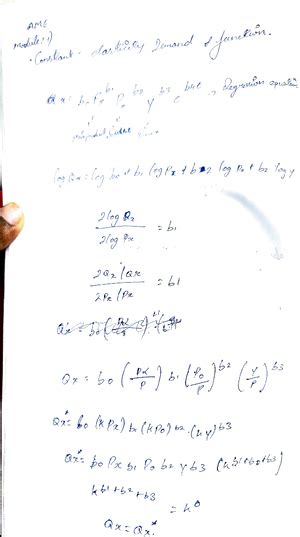 AME
Module:-1)
• Constant - elasticity Demand & function.
Qx = b0 Px^b1 Po^b2 y^b3 e , Regression equation
log Qx = log b0 + b1 log Px + b2 log Po + b3 log y
2log Qx / 2log Px = b1
2Qx/Qx / 2Px/Px = b1
Qx = b0 (Px/P) b1 (Po/P)^b2 (Y/P)^b3
Qx* = b0 (kPx) b1 (kPo) b2 . (ky) b3
Qx* = b0 Px b1 Po b2 y b3 (k b1+b2+b3)
k b1+b2+b3 = k^0
Qx = Qx*